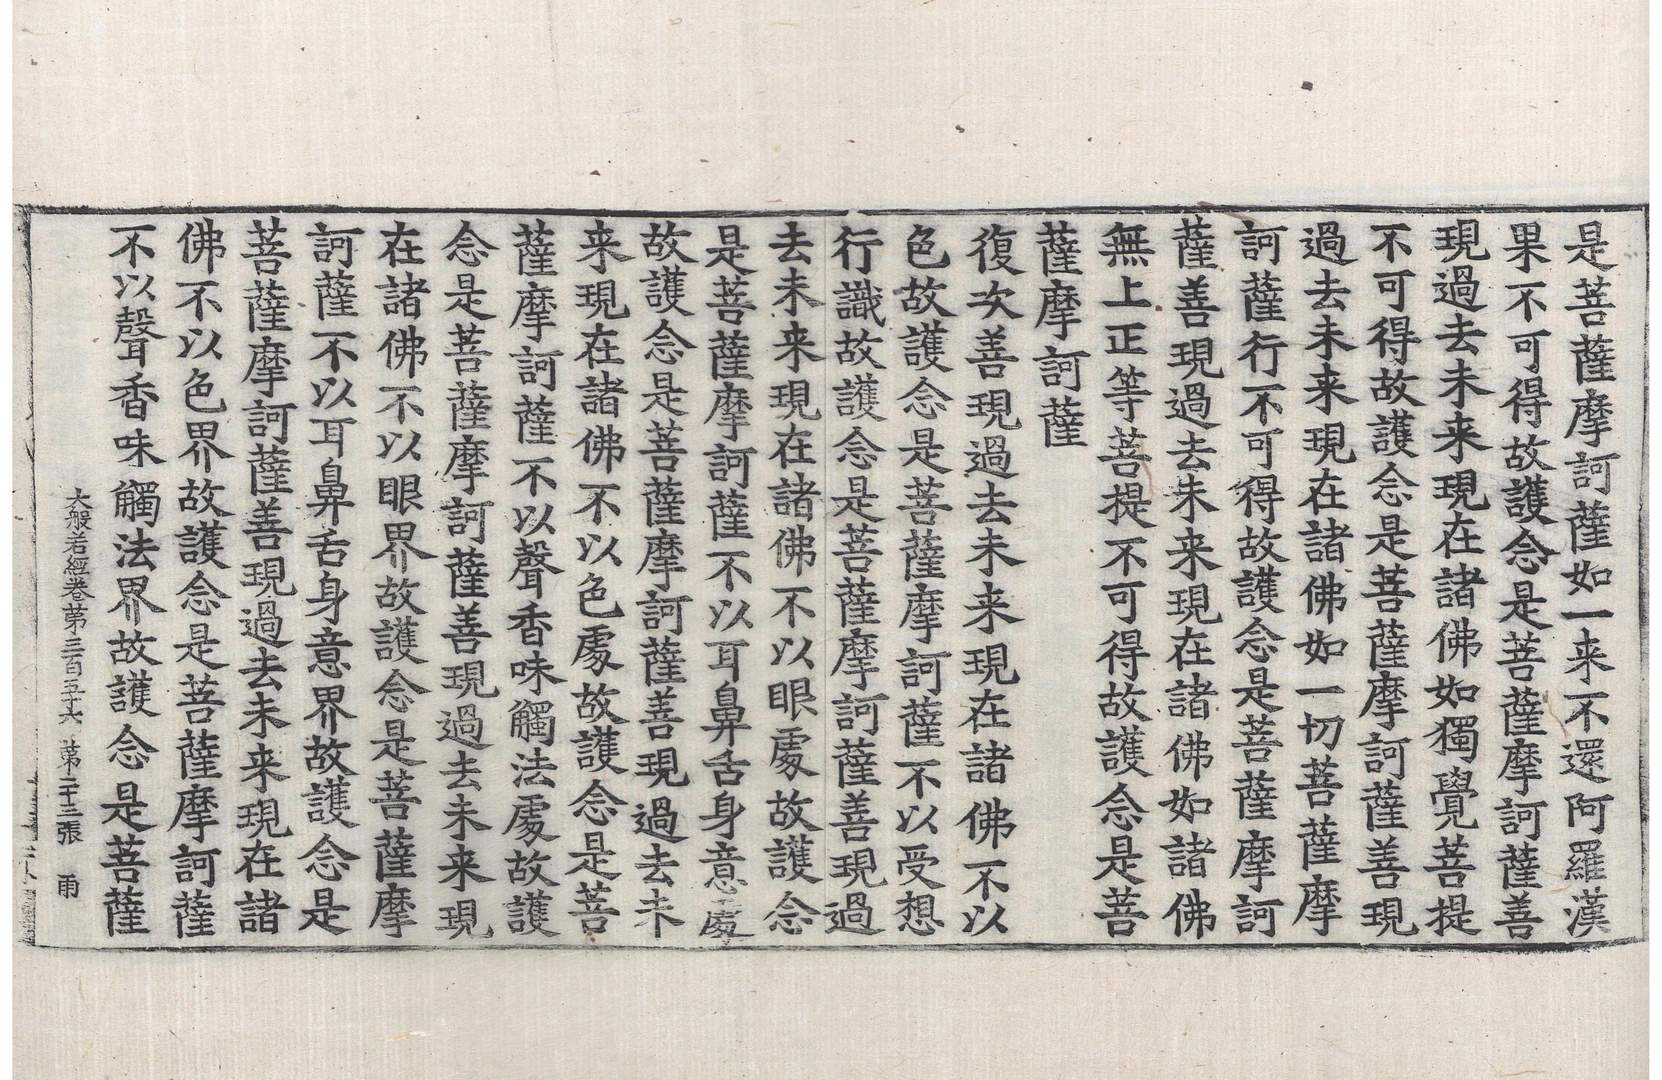 是菩薩摩訶薩如一来不還阿羅漢
果不可得故護念是菩薩摩訶薩善
現過去未来現在諸佛如獨覺菩提
不可得故護念是菩薩摩訶薩善現
過去未来現在諸佛如一切菩薩摩
訶薩行不可得故護念是菩薩摩訶
薩善現過去未来現在諸佛如諸佛
無上正等菩提不可得故護念是菩
薩摩訶薩
復次善現過去未来現在諸佛不以
色故護念是菩薩摩訶薩不以受想
行識故護念是菩薩摩訶薩善現過
去未来現在諸佛不以眼處故護念
是菩薩摩訶薩不以耳鼻舌身意處
故護念是菩薩摩訶薩善現過去未
来現在諸佛不以色處故護念是菩
薩摩訶薩不以聲香味觸法處故護
念是菩薩摩訶薩善現過去未来現
在諸佛不以眼界故護念是菩薩摩
訶薩不以耳鼻舌身意界故護念是
菩薩摩訶薩善現過去未来現在諸
佛不以色界故護念是菩薩摩訶薩
不以聲香味觸法界故護念是菩薩
大般若經卷第三百五十六 第二十三張 雨